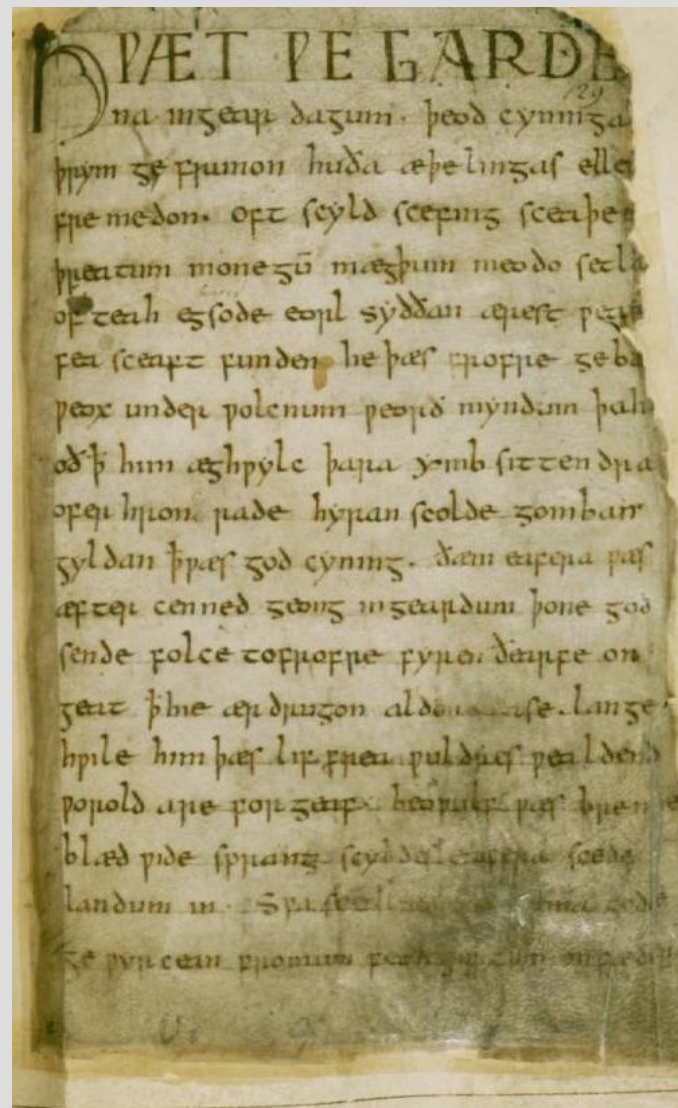 HǷÆT ǷE GARDE
129
na ingear dagum. þeod cyninga
þrym ge frunon huða æþelingas elle
fre medon. oft scyld scefing sceaþe
þreatum monegū mægþum meodo setla
of teah egsode eorl syððan ærest ƿea
fea sceaft funden he þæs frofre geba
ƿeox under ƿolcnum ƿeorð myndum þah
oð ꝥ him æghƿylc þara ymb sittendra
ofer hron rade hyran scolde gomban
gyldan ꝥ ƿæs god cyning. ðæm eafera ƿæs
æfter cenned geong ingeardum þone god
sende folce tofrofre fyren ðearfe on
geat ꝥ hie ær drugon aldor ase. lange
hƿile him þæs lif frea ƿuldres ƿealdend
ƿorold are for geaf. beoƿulf ƿæs breme
blæd ƿide sprang scyldes eafera scede
landum in. Sƿa gode
ge ƿyrcean fromum feoh giftum on fæder